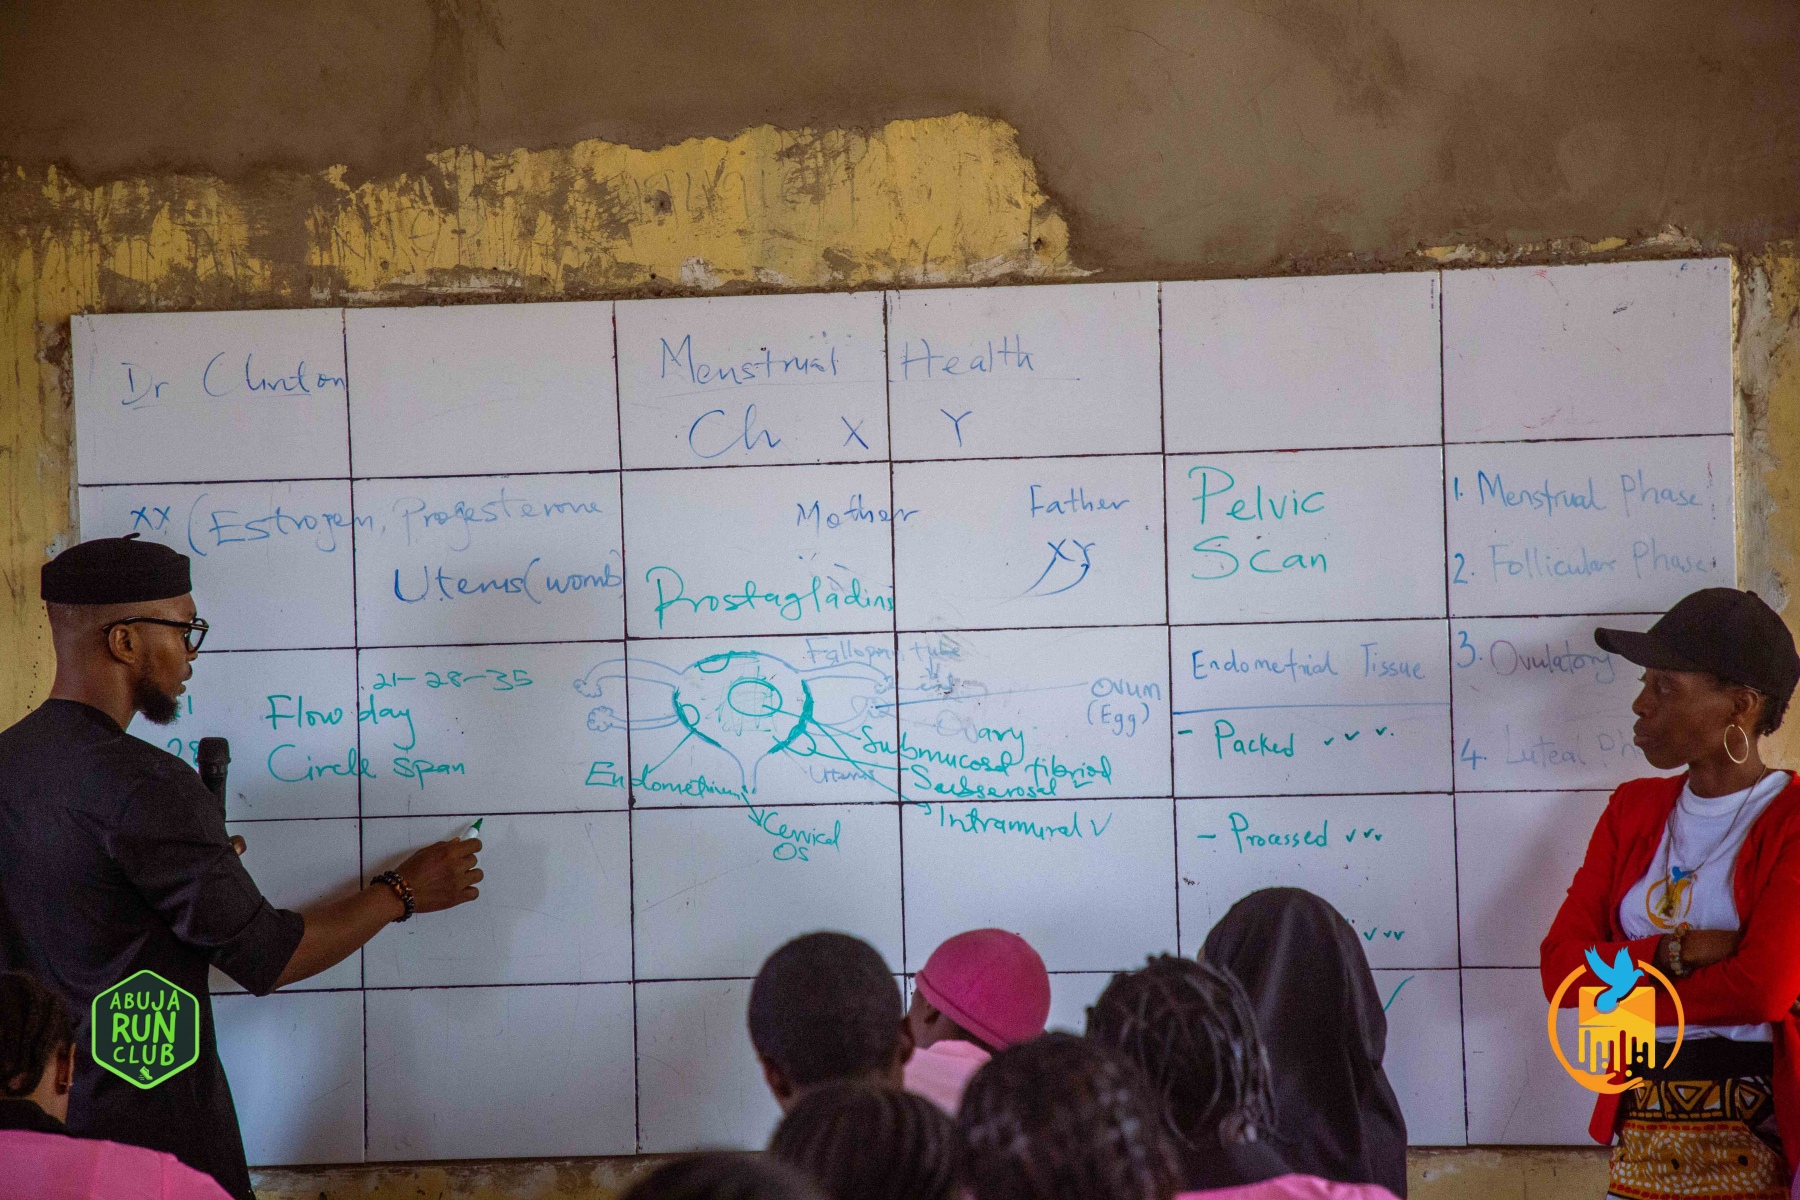 Dr Clinton
Menstrual Health
Ch X Y
XX (Estrogen, Progesterone
Uterus (womb
Mother
Father
XY
Prostagladins
Pelvic
Scan
1. Menstrual Phase
2. Follicular Phase
3. Ovulatory
4. Luteal Ph
21-28-35
Flow day
28
Circle span
Fallopian tube
Ovary
Ovum
(Egg)
Uterus
Endometrium
Cervical
OS
Submucosal fibriod
Subserosal
Intramural
Endometrial Tissue
- Packed ✓✓✓
- Processed ✓✓✓
✓✓✓
ABUJA
RUN
CLUB